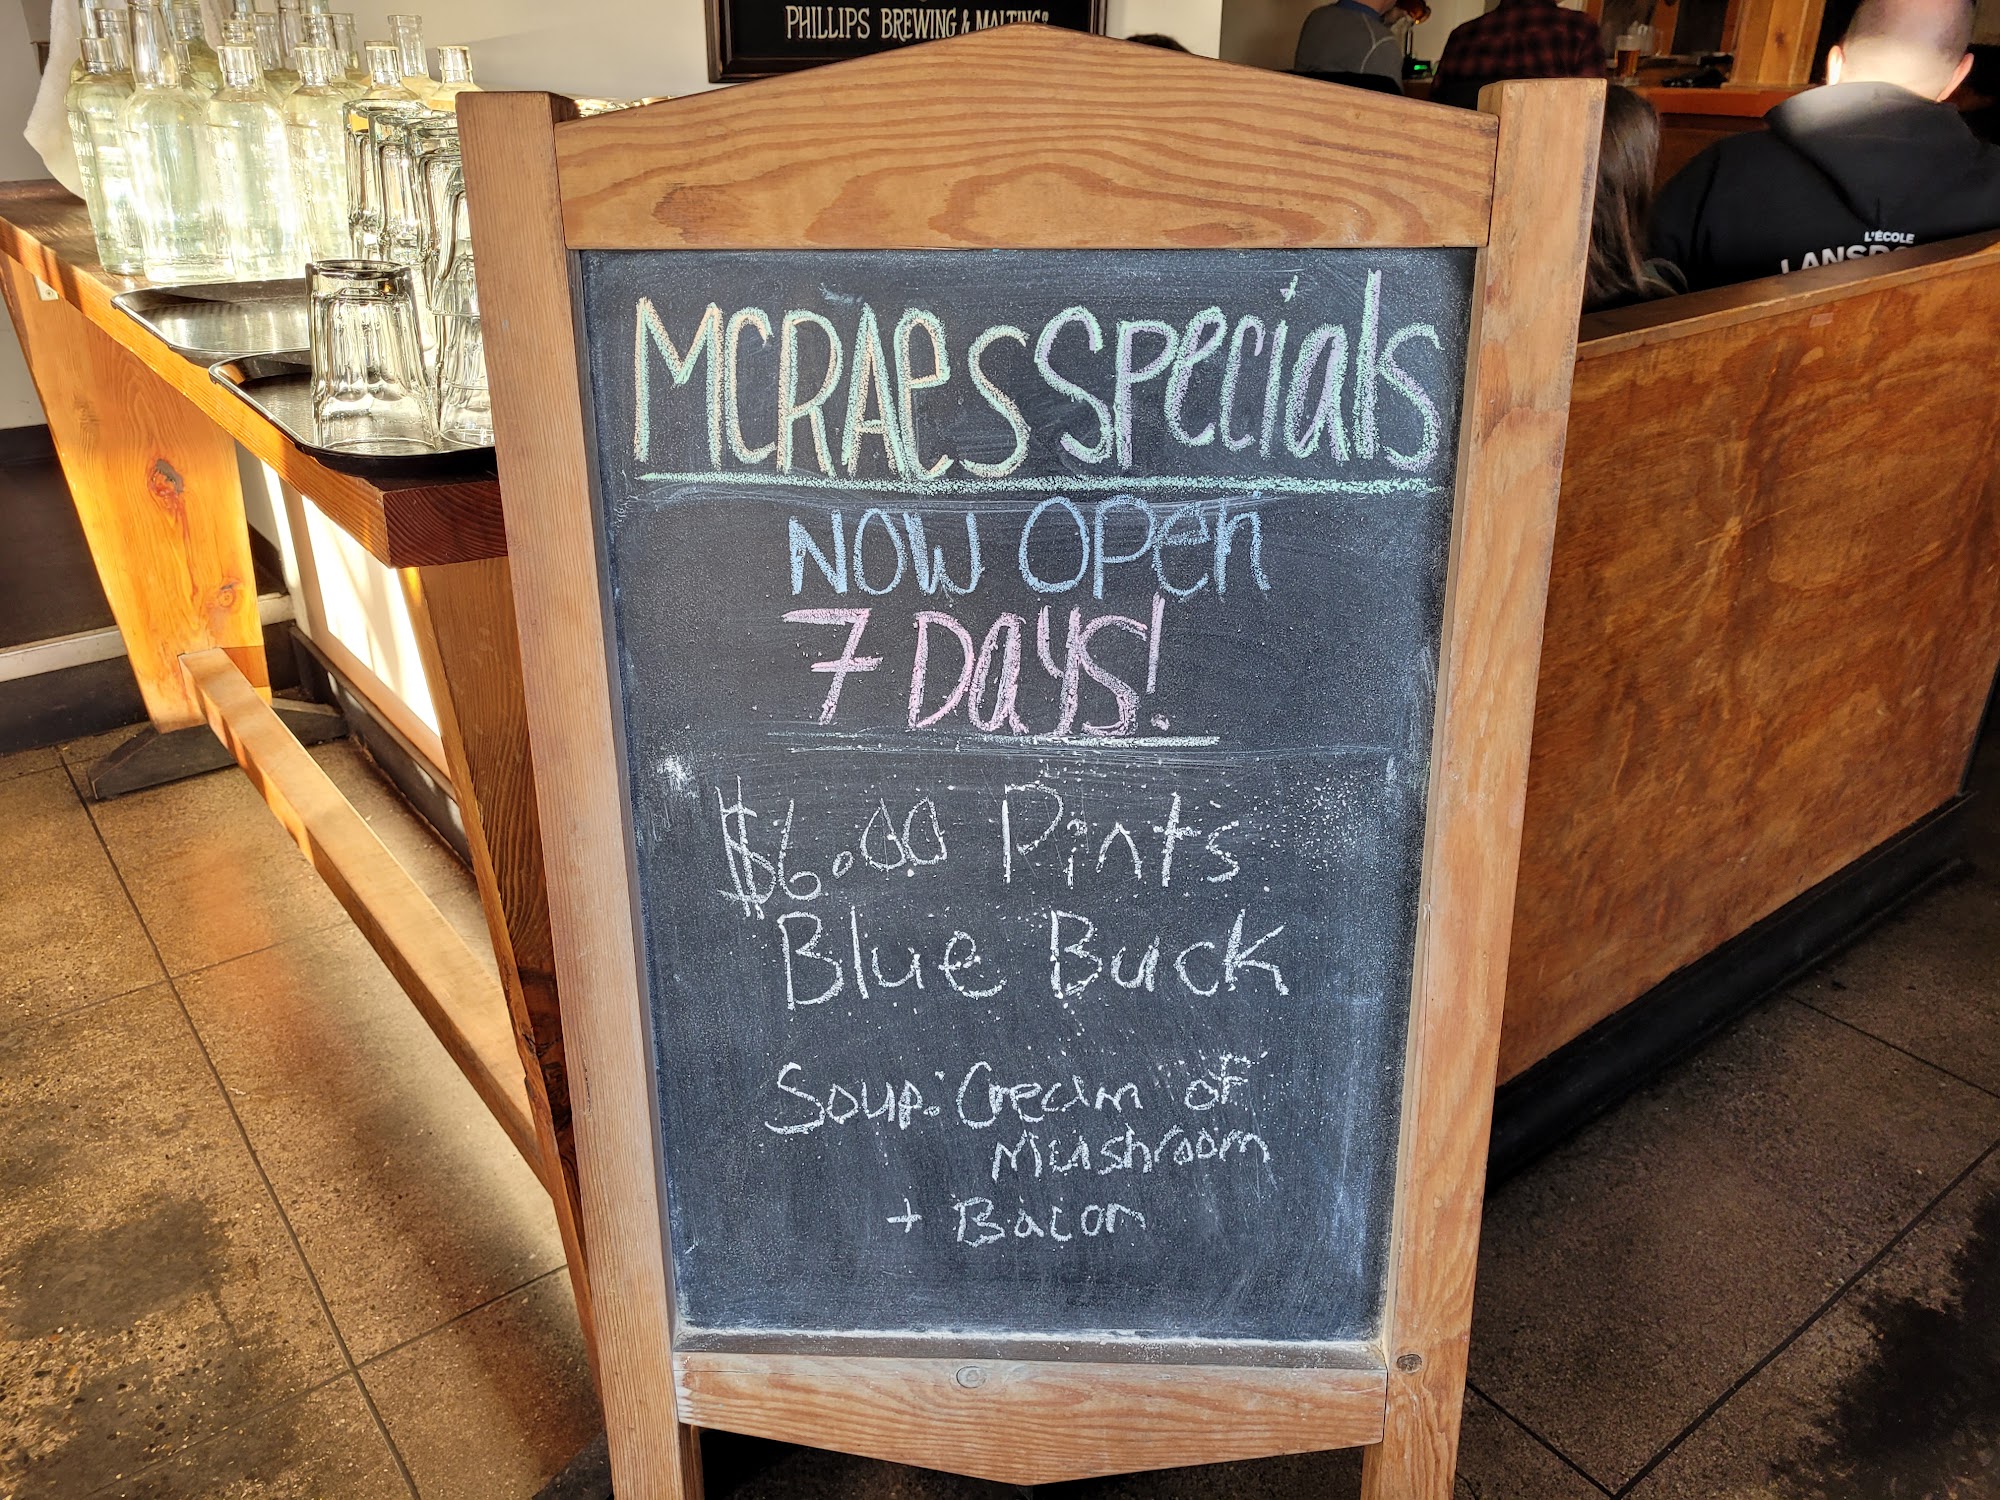 PHILLIPS BREWING & MALTING CO
L'ÉCOLE
MCRAeS SPecials
NOW OPen
7 Days!
$6.00 Pints
Blue Buck
Soup: Cream of
Mushroom
+ Bacon